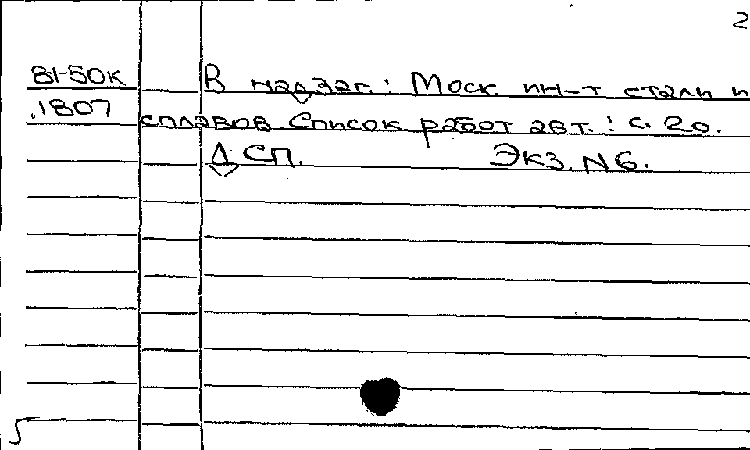 2
81-50к В надзаг.: Моск. ин-т стали и
.1807 сплавов. Список работ авт.: с. 20.
ДСП. Экз. N6.
5